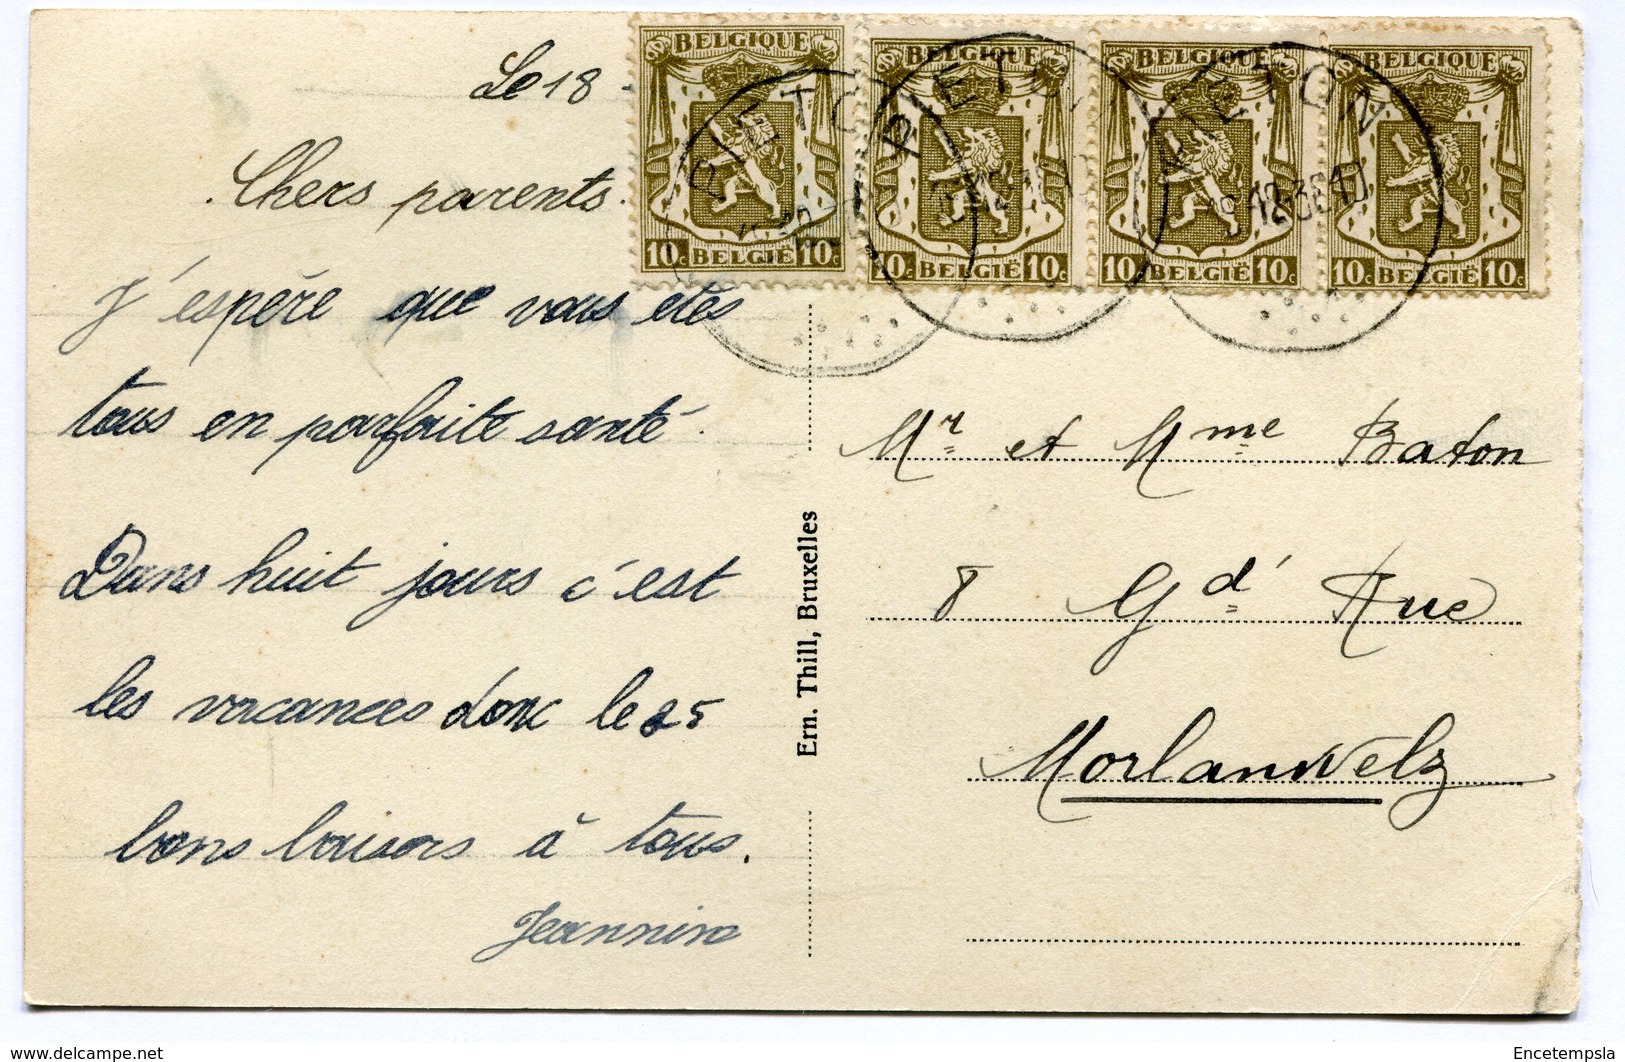 Le 18
Chers parents.
J'espère que vous etes
tous en parfaite santé.
Dans huit jours c'est
les vacances donc le 25
bons baisers à tous.
Jeannine
BELGIQUE
10c BELGIË 10c
BELGIQUE
10c BELGIË 10c
BELGIQUE
10c BELGIË 10c
BELGIQUE
10c BELGIË 10c
PIETON
Ern. Thill, Bruxelles
Mr et Mme Baton
8 Gd' Rue
Morlanwelz
www.delcampe.net
Encetempsla